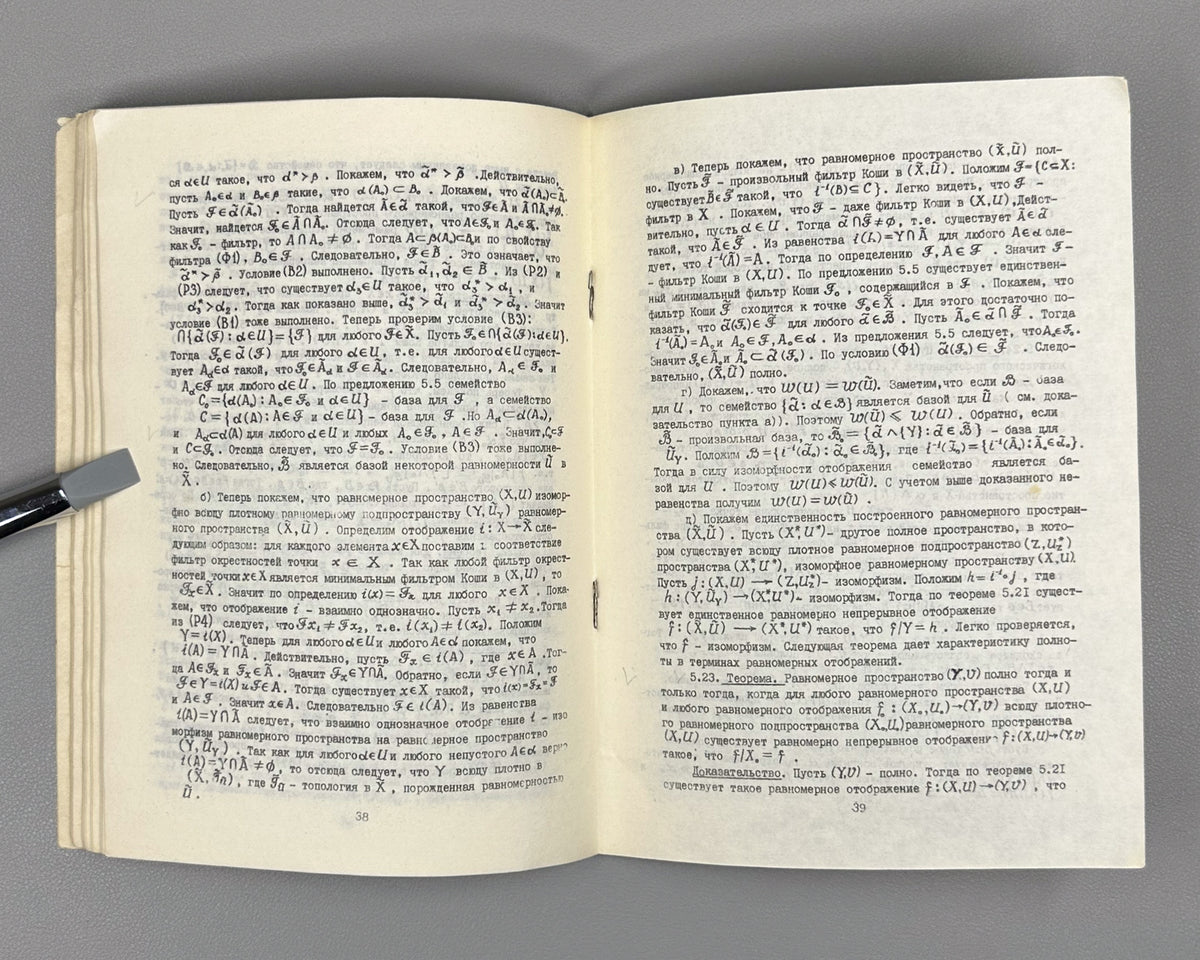 ся α∈U такое, что α*>β . Покажем, что α̃*>β̃ .Действительно,
пусть A₀∈α и B₀∈β такие, что α(A₀)⊂B₀ . Докажем, что α̃(Ã₀)⊂B̃₀
Пусть ℱ∈α̃(Ã₀) . Тогда найдется Ã∈α̃ такой, что ℱ∈Ã и Ã∩Ã₀≠∅.
Значит, найдется ℱ₀∈Ã∩Ã₀. Отсюда следует, что A∈ℱ₀ и A₀∈ℱ₀. Так
как ℱ₀ - фильтр, то A∩A₀≠∅ . Тогда A⊂ и по свойству
фильтра (Ф1), B₀∈ℱ . Следовательно, ℱ∈B̃ . Это означает, что
α̃*>β̃ . Условие(В2) выполнено. Пусть α̃₁,α̃₂∈B̃ . Из (Р2) и
(Р3) следует, что существует α₃∈U такое, что α₃*>α₁ , и
α₃*>α₂. Тогда как показано выше, α̃₃*>α̃₁ и α̃₃*>α̃₂. Значит
условие (В1) тоже выполнено. Теперь проверим условие (В3):
∩{α̃(ℱ):α∈U}={ℱ} для любого ℱ∈X̃. Пусть ℱ₀∈∩{α̃(ℱ):α∈U}.
Тогда ℱ₀∈α̃(ℱ) для любого α∈U, т.е. для любого α∈U сущест-
вует A_α∈α такой, что ℱ₀∈Ã_α и ℱ∈Ã_α. Следовательно, A_α∈ℱ₀ и
A_α∈ℱ для любого α∈U. По предложению 5.5 семейство
C₀={α(A₀):A₀∈ℱ₀ и α∈U} - база для ℱ₀, а семейство
C={α(A):A∈ℱ и α∈U} - база для ℱ .Но A_α⊂α(A₀),
и A_α⊂α(A) для любого α∈U и любых A₀∈ℱ₀, A∈ℱ . Значит, C₀⊂ℱ
и C⊂ℱ₀. Отсюда следует, что ℱ=ℱ₀. Условие (В3) тоже выполне-
но. Следовательно, ℬ̃ является базой некоторой равномерности Ũ в
X̃ .
б) Теперь покажем, что равномерное пространство (X,U) изомор-
фно всюду плотному равномерному подпространству (Y,Ũ_Y) равномер-
ного пространства (X̃,Ũ) . Определим отображение i:X→X̃ сле-
дующим образом: для каждого элемента x∈X поставим в соответствие
фильтр окрестностей точки x∈X . Так как любой фильтр окрест-
ностей точки x∈X является минимальным фильтром Коши в (X,U) , то
ℱₓ∈X̃. Значит по определению i(x)=ℱₓ для любого x∈X . Пока-
жем, что отображение i - взаимно однозначно. Пусть x₁≠x₂.Тогда
из (Р4) следует, что ℱx₁≠ℱx₂, т.е. i(x₁)≠i(x₂). Положим
Y=i(X) . Теперь для любого α∈U и любого A∈α покажем, что
i(A)=Y∩Ã . Действительно, пусть ℱₓ∈i(A) , где x∈A .Тог-
ца A∈ℱₓ и ℱₓ∈Ã. Значит ℱₓ∈Y∩Ã. Обратно, если ℱ∈Y∩Ã, то
ℱ∈Y=i(X) и ℱ∈Ã. Тогда существует x∈X такой, что i(x)=ℱₓ=ℱ
и A∈ℱ . Значит x∈A. Следовательно ℱ∈i(A). Из равенства
i(A)=Y∩Ã следует, что взаимно однозначное отображение i - изо
морфизм равномерного пространства на равномерное пространство
(Y,Ũ_Y) . Так как для любого α∈U и любого непустого A∈α верно
i(A)=Y∩Ã≠∅, то отсюда следует, что Y всюду плотно в
, где - топология в X̃ , порожденная равномерностью
Ũ .
38
в) Теперь покажем, что равномерное пространство (X̃,Ũ) пол-
но. Пусть ℱ̃ - произвольный фильтр Коши в (X̃,Ũ). Положим ℱ={C⊆X:
существует B̃∈ℱ̃ такой, что i⁻¹(B̃)⊆C}. Легко видеть, что ℱ -
фильтр в X . Покажем, что ℱ - даже фильтр Коши в (X,U).Дейст-
вительно, пусть α∈U . Тогда α̃∩ℱ̃≠∅, т.е. существует Ã∈α̃
такой, что Ã∈ℱ̃ . Из равенства i(A)=Y∩Ã для любого A∈α сле-
дует, что i⁻¹(Ã)=A. Тогда по определению ℱ, A∈ℱ . Значит ℱ-
- фильтр Коши в (X,U). По предложению 5.5 существует единствен-
ный минимальный фильтр Коши ℱ₀ , содержащийся в ℱ . Покажем, что
фильтр Коши ℱ̃ сходится к точке ℱ₀∈X̃ . Для этого достаточно по-
казать, что α̃(ℱ₀)∈ℱ̃ для любого α̃∈ℬ̃. Пусть Ã₀∈α̃∩ℱ̃ . Тогда
i⁻¹(Ã₀)=A₀ и A₀∈ℱ, A₀∈α. Из предложения 5.5 следует, что A₀∈ℱ₀.
Значит ℱ₀∈Ã₀ и Ã₀⊂α̃(ℱ₀). По условию (Ф1) α̃(ℱ₀)∈ℱ̃ . Следо-
вательно, (X̃,Ũ) полно.
г) Докажем, что w(U)=w(Ũ). Заметим,что если ℬ - база
для U , то семейство {α̃:α∈ℬ} является базой для Ũ ( см. дока-
зательство пункта а)). Поэтому w(Ũ)⩽w(U) . Обратно, если
ℬ̃ - произвольная база, то ℬ̃₀={α̃∧{Y}:α̃∈ℬ̃} - база для
Ũ_Y. Положим ℬ={i⁻¹(α̃₀):α̃₀∈ℬ̃₀}, где i⁻¹(α̃₀)={i⁻¹(Ã₀):Ã₀∈α̃₀}.
Тогда в силу изоморфности отображения семейство является ба-
зой для U . Поэтому w(U)⩽w(Ũ). С учетом выше доказанного не-
равенства получим w(U)=w(Ũ) .
д) Покажем единственность построенного равномерного простран-
ства (X̃,Ũ) . Пусть (X*,U*)- другое полное пространство, в кото-
ром существует всюду плотное равномерное подпространство (Z,U*_Z)
пространства (X*,U*), изоморфное равномерному пространству (X,U).
Пусть j:(X,U)⟶(Z,U*_Z)- изоморфизм. Положим h=i⁻¹∘j , где
h:(Y,Ũ_Y)→(X*,U*)- изоморфизм. Тогда по теореме 5.21 сущест-
вует единственное равномерно непрерывное отображение
f:(X̃,Ũ)⟶(X*,U*) такое, что f/Y=h . Легко проверяется,
что f - изоморфизм. Следующая теорема дает характеристику полно-
ты в терминах равномерных отображений.
5.23. Теорема. Равномерное пространство (Y,V) полно тогда и
только тогда, когда для любого равномерного пространства (X,U)
и любого равномерного отображения f₀:(X₀,U₀)→(Y,V) всюду плотно-
го равномерного подпространства (X₀,U₀)равномерного пространства
(X,U) существует равномерно непрерывное отображение f:(X,U)→(Y,V)
такое, что f/X₀=f .
Доказательство. Пусть (Y,V) - полно. Тогда по теореме 5.21
существует такое равномерное отображение f:(X,U)→(Y,V) , что
39